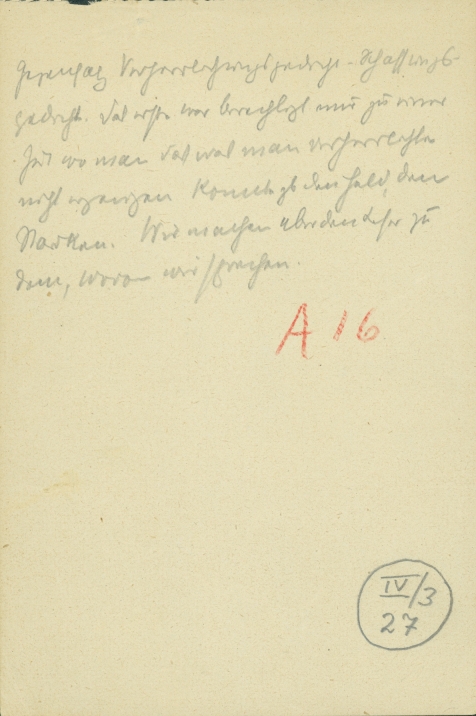 Gegensatz Verherrlichungsgedicht - Schaffungs-
gedicht. Das erste war berechtigt nur zu einer
Zeit wo man das was man verherrlichte
nicht erzeugen konnte zb den Held, den
Starken. Wir machen aber den Leser zu
dem, wovon wir sprechen.
A 16
IV/3
27